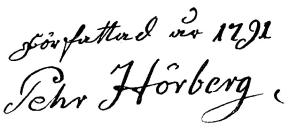 författad år 1791
Pehr Hörberg,